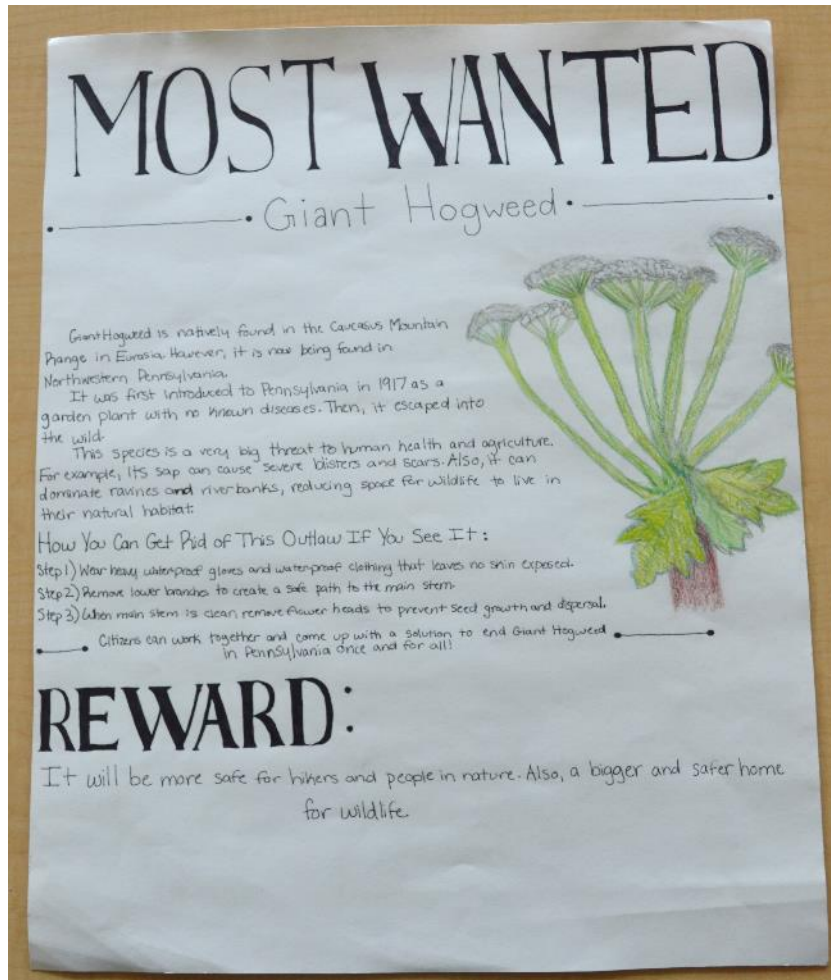 MOST WANTED
Giant Hogweed
Giant Hogweed is natively found in the Caucasus Mountain
Range in Eurasia. However, it is now being found in
Northwestern Pennsylvania.
It was first introduced to Pennsylvania in 1917 as a
garden plant with no known diseases. Then, it escaped into
the wild.
This species is a very big threat to human health and agriculture.
For example, its sap can cause severe blisters and scars. Also, it can
dominate ravines and riverbanks, reducing space for wildlife to live in
their natural habitat.
How You Can Get Rid of This Outlaw If You See It:
Step 1) Wear heavy waterproof gloves and waterproof clothing that leaves no skin exposed.
Step 2) Remove lower branches to create a safe path to the main stem.
Step 3) When main stem is clean, remove flower heads to prevent seed growth and dispersal.
Citizens can work together and come up with a solution to end Giant Hogweed
in Pennsylvania once and for all!
REWARD:
It will be more safe for hikers and people in nature. Also, a bigger and safer home
for wildlife.